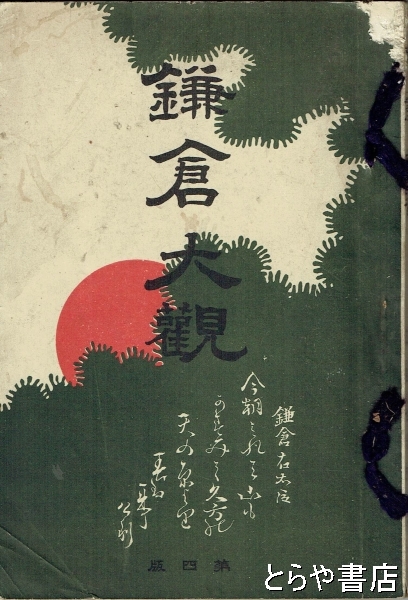 鎌倉大觀
鎌倉右大臣
今朝ミれハ山も
かすみて久方の
天の原より
春は
来に
けり
第四版
とらや書店